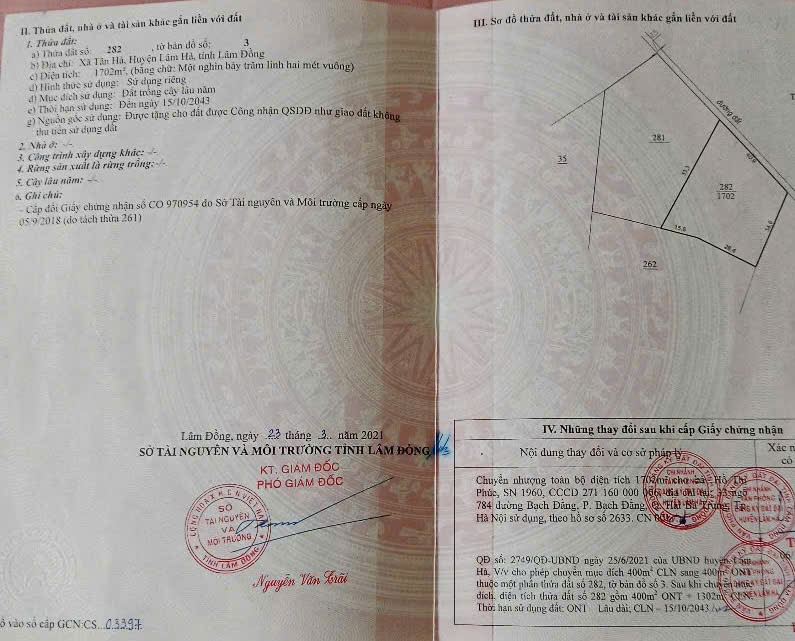 II. Thửa đất, nhà ở và tài sản khác gắn liền với đất
1. Thửa đất:
a) Thửa đất số: 282 , tờ bản đồ số: 3
b) Địa chỉ: Xã Tân Hà, Huyện Lâm Hà, tỉnh Lâm Đồng
c) Diện tích: 1702m², (bằng chữ: Một nghìn bảy trăm linh hai mét vuông)
d) Hình thức sử dụng: Sử dụng riêng
đ) Mục đích sử dụng: Đất trồng cây lâu năm
e) Thời hạn sử dụng: Đến ngày 15/10/2043
g) Nguồn gốc sử dụng: Được tặng cho đất được Công nhận QSDĐ như giao đất không
thu tiền sử dụng đất
2. Nhà ở: -/-
3. Công trình xây dựng khác: -/-
4. Rừng sản xuất là rừng trồng: -/-
5. Cây lâu năm: -/-
6. Ghi chú:
- Cấp đổi Giấy chứng nhận số CO 970954 do Sở Tài nguyên và Môi trường cấp ngày
05/9/2018 (do tách thửa 261)
Lâm Đồng, ngày 23 tháng 3 năm 2021
SỞ TÀI NGUYÊN VÀ MÔI TRƯỜNG TỈNH LÂM ĐỒNG
KT. GIÁM ĐỐC
PHÓ GIÁM ĐỐC
SỞ
TÀI NGUYÊN
VÀ
MÔI TRƯỜNG
TỈNH LÂM ĐỒNG
Nguyễn Văn Trãi
ố vào sổ cấp GCN:CS...03397
III. Sơ đồ thửa đất, nhà ở và tài sản khác gắn liền với đất
đường đất
281
35
282
1702
15,6
26,4
262
IV. Những thay đổi sau khi cấp Giấy chứng nhận
Nội dung thay đổi và cơ sở pháp lý
Xác n
có
Chuyển nhượng toàn bộ diện tích 1702m² cho bà Hồ Thị
Phúc, SN 1960, CCCD 271 160 000 địa chỉ tại: 33 ngõ
784 đường Bạch Đằng, P. Bạch Đằng, Q. Hai Bà Trưng, TP.
Hà Nội sử dụng, theo hồ sơ số 2633. CN
QĐ số: 2749/QĐ-UBND ngày 25/6/2021 của UBND huyện Lâm
Hà. V/v cho phép chuyển mục đích 400m² CLN sang 400m² ONT
thuộc một phần thửa đất số 282, tờ bản đồ số 3. Sau khi chuyển mục
đích, diện tích thửa đất số 282 gồm 400m² ONT + 1302m² CLN.
Thời hạn sử dụng đất: ONT - Lâu dài; CLN - 15/10/2043